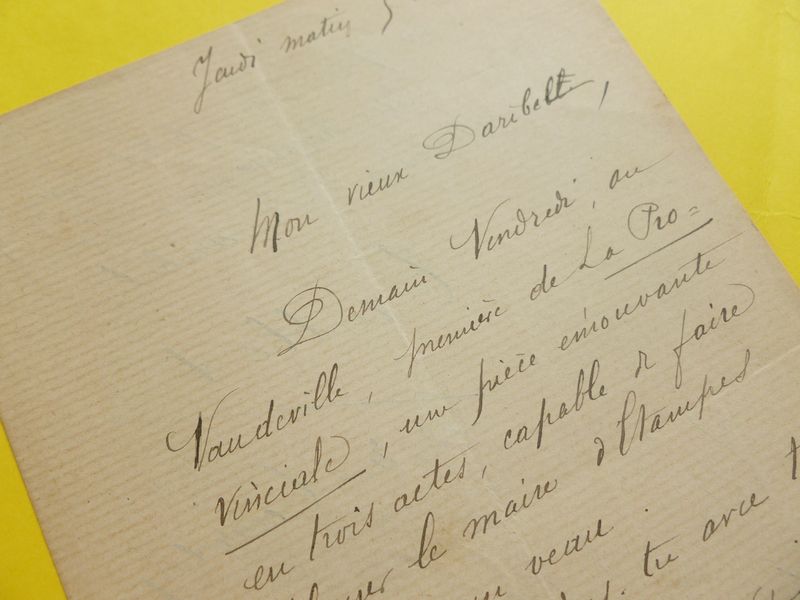 Jeudi matin
Mon vieux Daribelt,
Demain Vendredi, au
Vaudeville, première de La Pro=
vinciale, une pièce émouvante
en trois actes, capable de faire
le maire d'Etampes
veau.
tu